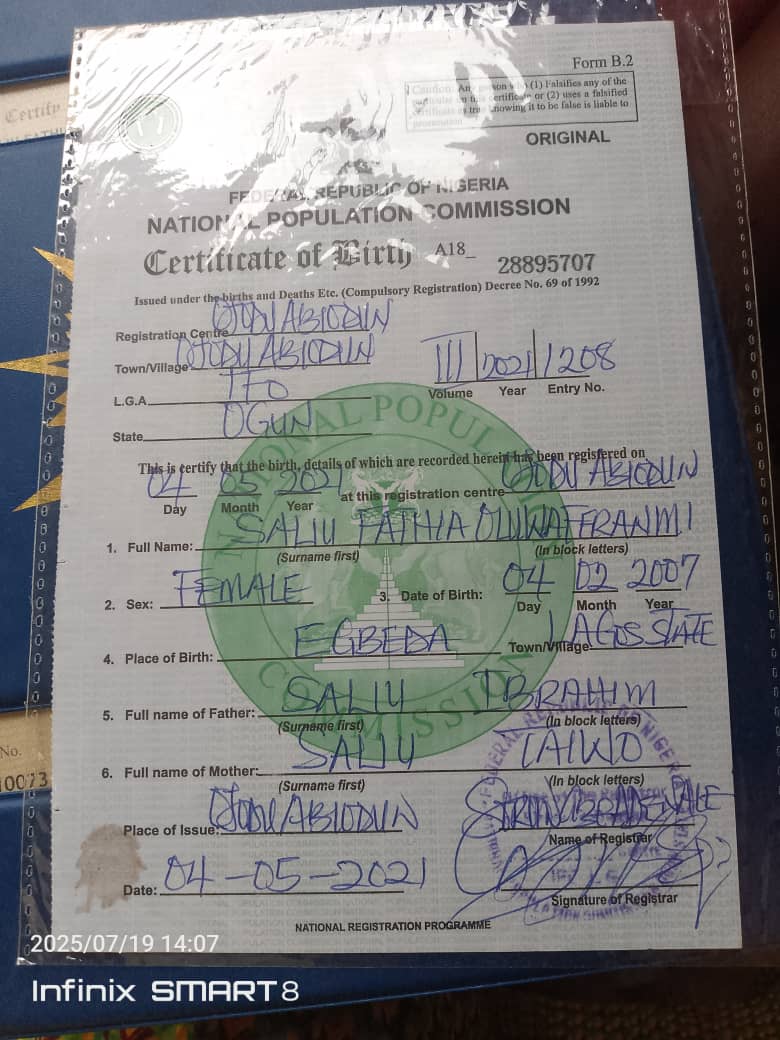 Certify
No.
10073
Form B.2
Caution: Any person who (1) Falsifies any of the
particular on this certificate or (2) uses a falsified
certificate as true knowing it to be false is liable to
prosecution
ORIGINAL
FEDERAL REPUBLIC OF NIGERIA
NATIONAL POPULATION COMMISSION
Certificate of Birth A18_ 28895707
Issued under the births and Deaths Etc. (Compulsory Registration) Decree No. 69 of 1992
Registration Centre OJODU ABIODUN
Town/Village OJODU ABIODUN
L.G.A IFO
III 2021 1208
Volume Year Entry No.
State OGUN
This is certify that the birth, details of which are recorded herein has been registered on
04 05 2021 at this registration centre OJODU ABIODUN
Day Month Year
1. Full Name: SALIU FATHIA OLUWAFERANMI
(Surname first) (In block letters)
2. Sex: FEMALE 3. Date of Birth: 04 02 2007
Day Month Year
4. Place of Birth: EGBEDA Town/Village: LAGOS STATE
5. Full name of Father: SALIU IBRAHIM
(Surname first) (In block letters)
6. Full name of Mother: SALIU TAIWO
(Surname first) (In block letters)
Place of Issue: OJODU ABIODUN
Name of Registrar
Date: 04-05-2021
Signature of Registrar
NATIONAL REGISTRATION PROGRAMME
NATIONAL POPULATION COMMISSION
2025/07/19 14:07
Infinix SMART 8